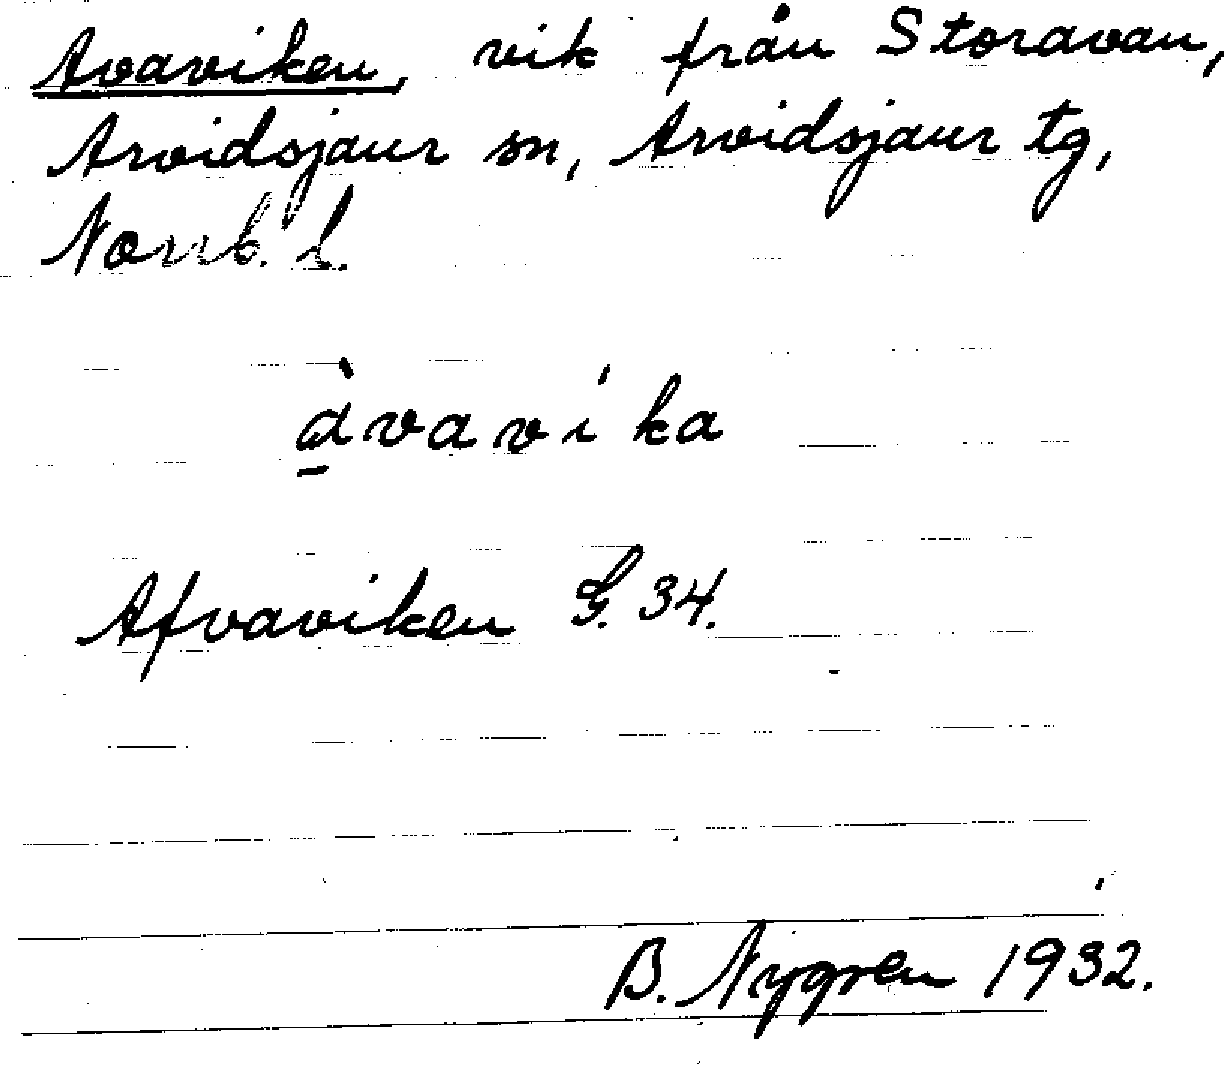 Avaviken, vik från Storavan,
Arvidsjaur sn, Arvidsjaur tg,
Norrb. l.
àvavíka
Afvaviken G. 34.
B. Nygren 1932.